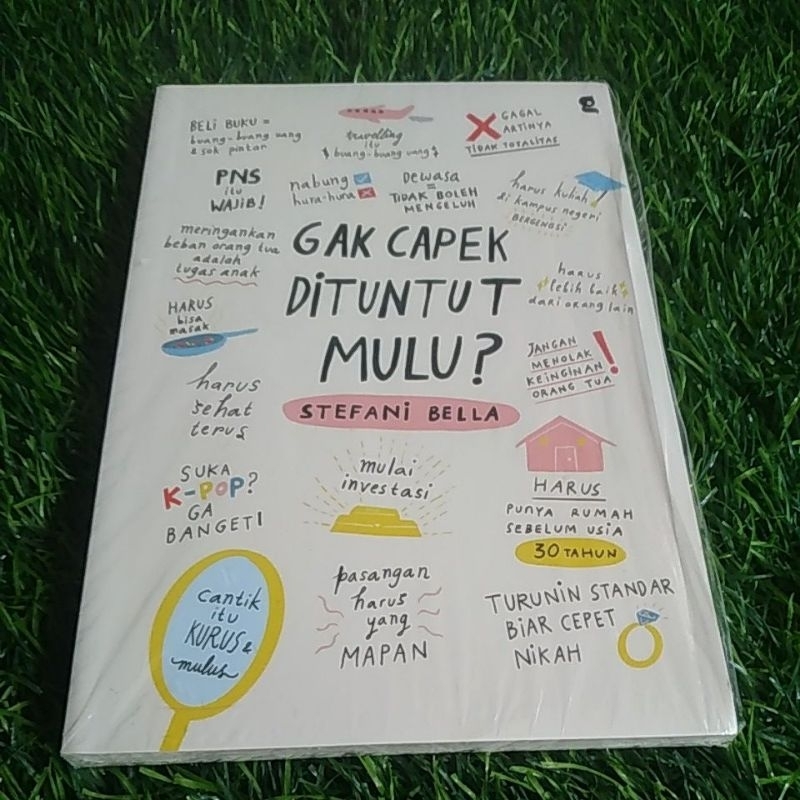 BELI BUKU =
buang-buang uang
& sok pintar
travelling
itu
$ buang-buang uang $
GAGAL
ARTINYA
TIDAK TOTALITAS
PNS
itu
WAJIB!
nabung
hura-hura
Dewasa
=
TIDAK BOLEH
MENGELUH
harus kuliah
di kampus negeri
BERGENGSI
meringankan
beban orang tua
adalah
tugas anak
GAK CAPEK
DITUNTUT
MULU?
STEFANI BELLA
harus
lebih baik
dari orang lain
HARUS
bisa
masak
JANGAN
MENOLAK
KEINGINAN
ORANG TUA
!
harus
sehat
terus
SUKA
K-POP?
GA
BANGET!
mulai
investasi
HARUS
PUNYA RUMAH
SEBELUM USIA
30 TAHUN
cantik
itu
KURUS &
mulus
pasangan
harus
yang
MAPAN
TURUNIN STANDAR
BIAR CEPET
NIKAH